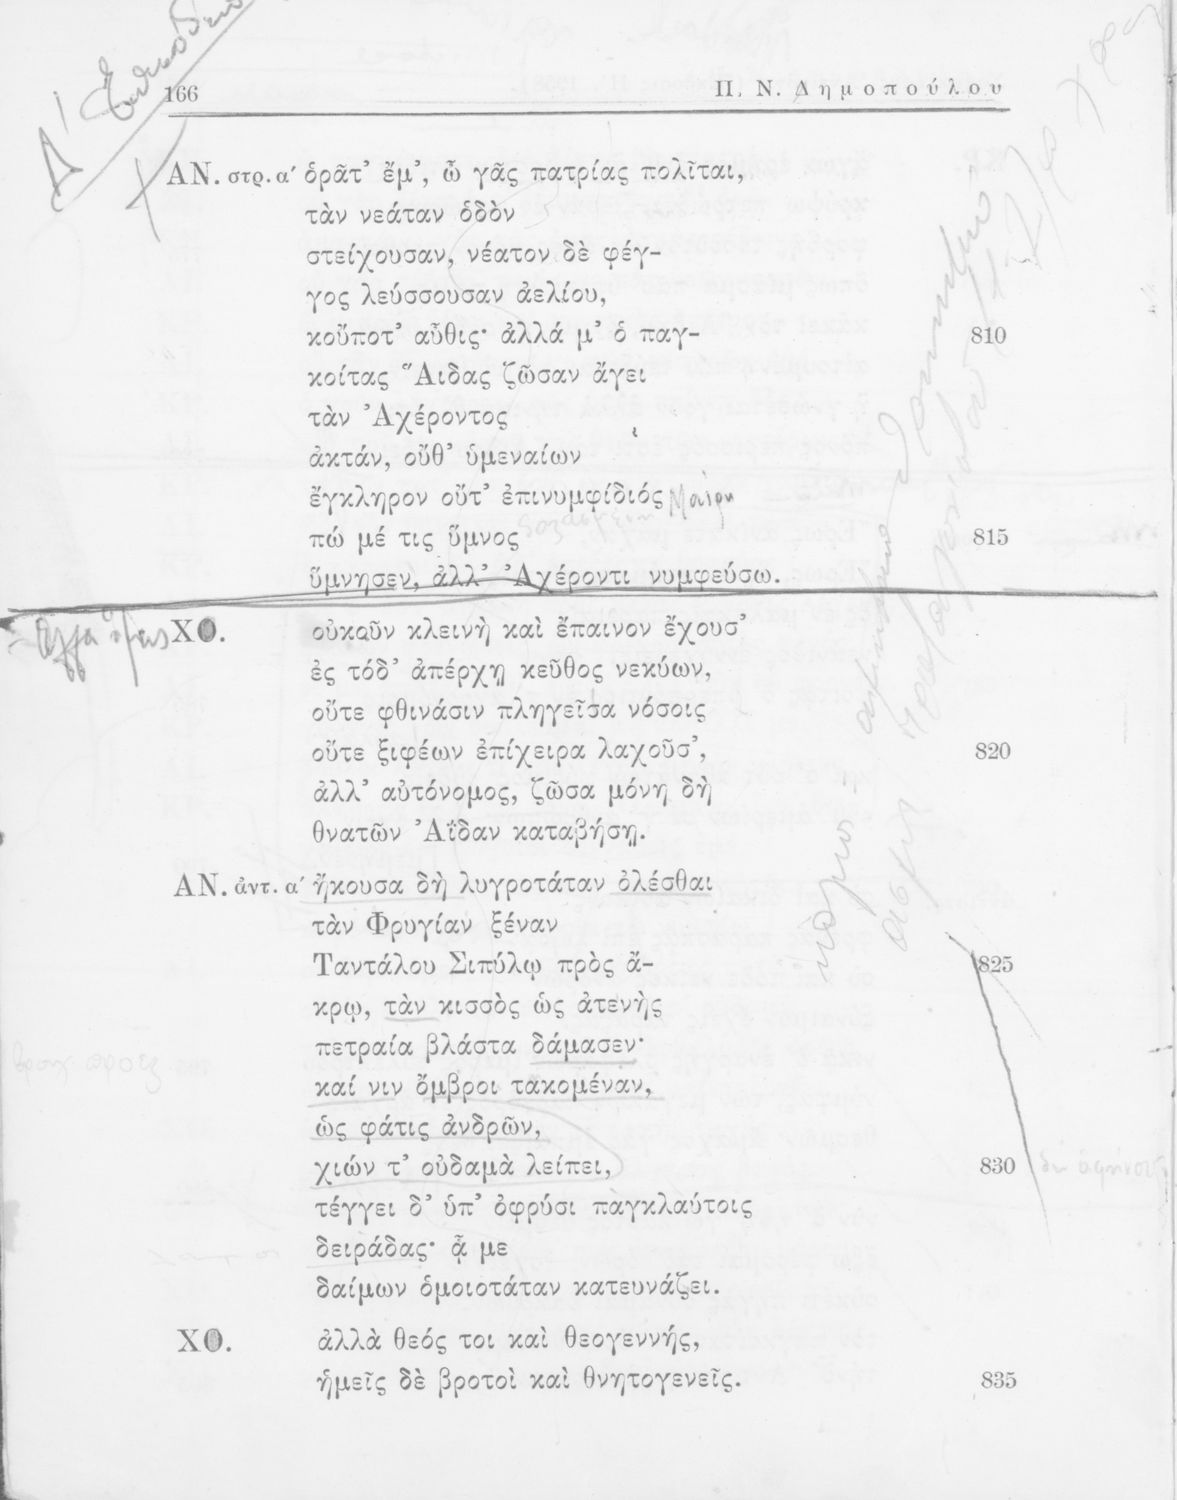 Δ΄ Ἐπεισόδιο
166 Π. Ν. Δημοπούλου
ΑΝ. στρ. α΄ ὁρᾶτ’ ἔμ’, ὦ γᾶς πατρίας πολῖται,
τὰν νεάταν ὁδὸν
στείχουσαν, νέατον δὲ φέγ-
γος λεύσσουσαν ἀελίου,
κοὔποτ’ αὖθις· ἀλλά μ’ ὁ παγ- 810
κοίτας Ἅιδας ζῶσαν ἄγει
τὰν Ἀχέροντος
ἀκτάν, οὔθ’ ὑμεναίων
ἔγκληρον οὔτ’ ἐπινυμφίδιός
πώ μέ τις ὕμνος 815
ὕμνησεν, ἀλλ’ Ἀχέροντι νυμφεύσω.
ΧΟ. οὐκοῦν κλεινὴ καὶ ἔπαινον ἔχουσ’
ἐς τόδ’ ἀπέρχῃ κεῦθος νεκύων,
οὔτε φθινάσιν πληγεῖσα νόσοις
οὔτε ξιφέων ἐπίχειρα λαχοῦσ’, 820
ἀλλ’ αὐτόνομος, ζῶσα μόνη δὴ
θνατῶν Ἀΐδαν καταβήσῃ.
ΑΝ. ἀντ. α΄ ἤκουσα δὴ λυγροτάταν ὀλέσθαι
τὰν Φρυγίαν ξέναν
Ταντάλου Σιπύλῳ πρὸς ἄ- 825
κρῳ, τὰν κισσὸς ὡς ἀτενὴς
πετραία βλάστα δάμασεν·
καί νιν ὄμβροι τακομέναν,
ὡς φάτις ἀνδρῶν,
χιών τ’ οὐδαμὰ λείπει, 830
τέγγει δ’ ὑπ’ ὀφρύσι παγκλαύτοις
δειράδας· ᾇ με
δαίμων ὁμοιοτάταν κατευνάζει.
ΧΟ. ἀλλὰ θεός τοι καὶ θεογεννής,
ἡμεῖς δὲ βροτοὶ καὶ θνητογενεῖς. 835